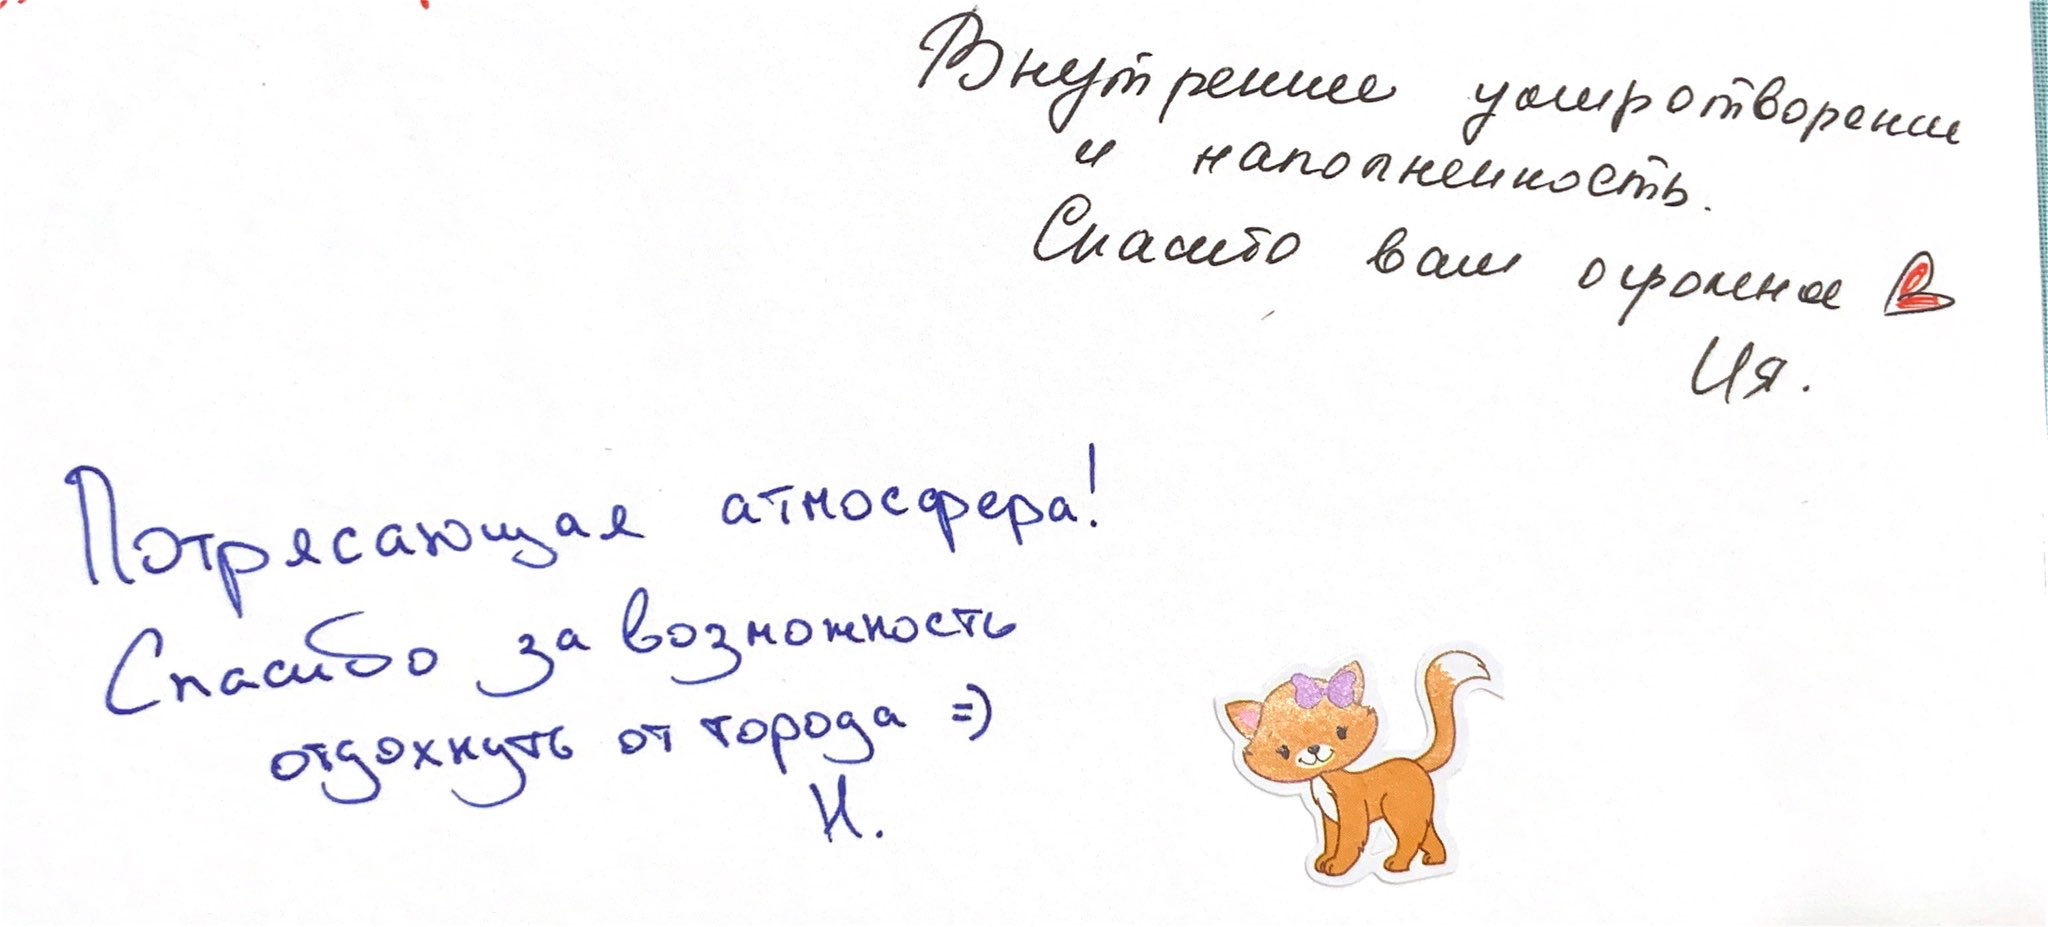 Внутреннее умиротворение
и наполненность.
Спасибо вам огромное
Ия.
Потрясающая атмосфера!
Спасибо за возможность
отдохнуть от города =)
И.